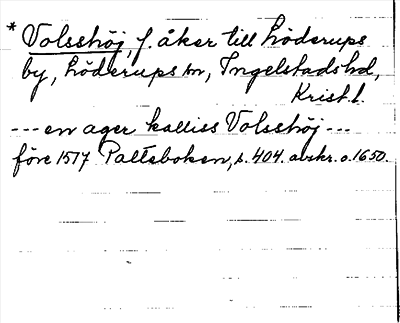 * Volsshöj, f. åker till Löderups
by, Löderups sn, Ingelstads hd,
Krist. l.
--- en ager kalliss Volsshöj ---
före 1517 Palteboken, s. 404. avskr. o. 1650.